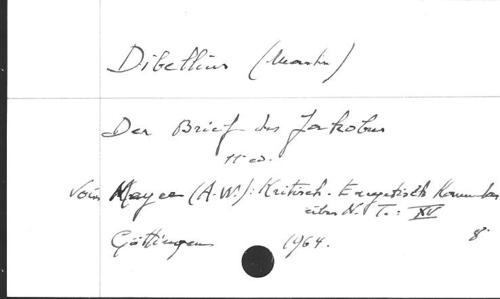 Dibelius (Martin)
Der Brief des Jakobus
11 ed.
Voir Meyer (A.W.): Kritisch. Exegetisch Kommentar
über N. T.: XV
Göttingen 1964. 8°